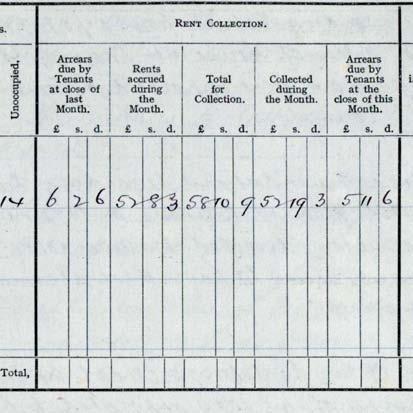 s.
RENT COLLECTION.
Unoccupied.
Arrears due by Tenants at close of last Month.
Rents accrued during the Month.
Total for Collection.
Collected during the Month.
Arrears due by Tenants at the close of this Month.
£ s. d. £ s. d. £ s. d. £ s. d. £ s. d.
14 6 2 6 52 8 3 58 10 9 52 19 3 5 11 6
Total,